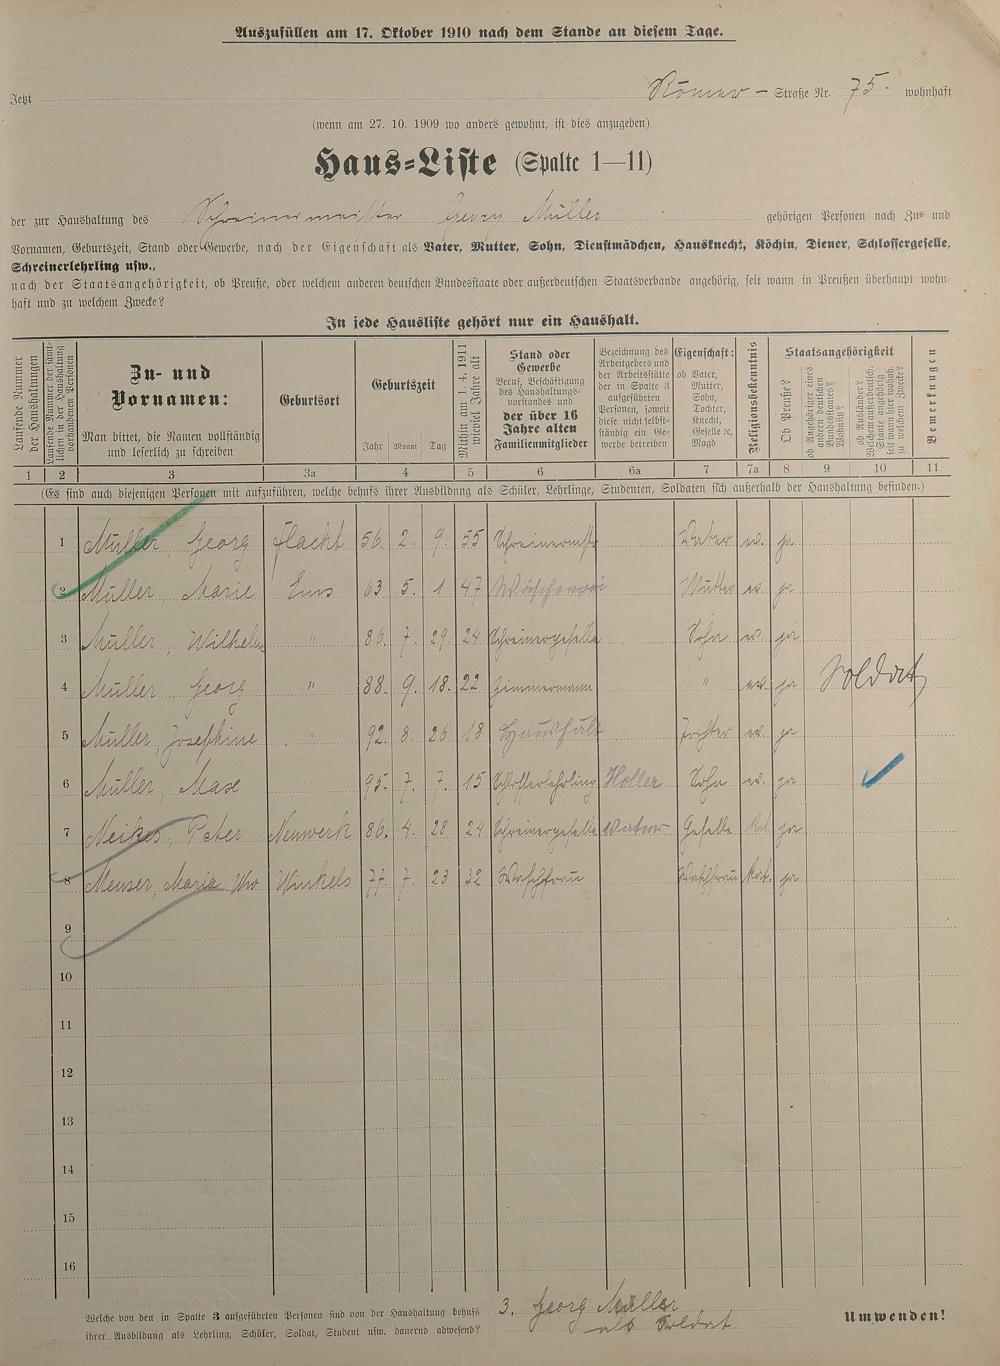 Auszufüllen am 17. Oktober 1910 nach dem Stande an diesem Tage.
Jetzt Römer - Straße Nr. 75. wohnhaft
(wenn am 27. 10. 1909 wo anders gewohnt, ist dies anzugeben)
Haus-Liste (Spalte 1—11)
der zur Haushaltung des Schreinermeister Georg Müller gehörigen Personen nach Zu- und
Vornamen, Geburtszeit, Stand oder Gewerbe, nach der Eigenschaft als Vater, Mutter, Sohn, Dienstmädchen, Hausknecht, Köchin, Diener, Schlossergeselle,
Schreinerlehrling usw.,
nach der Staatsangehörigkeit, ob Preuße, oder welchem anderen deutschen Bundesstaate oder außerdeutschen Staatsverbande angehörig, seit wann in Preußen überhaupt wohn-
haft und zu welchem Zwecke?
In jede Hausliste gehört nur ein Haushalt.
Laufende Nummer der Haushaltungen
Laufende Nummer der sämt-
lichen in der Haushaltung
vorhandenen Personen
Zu- und
Vornamen:
Man bittet, die Namen vollständig
und leserlich zu schreiben
Geburtsort
Geburtszeit
Jahr Monat Tag
Mithin am 1. 4. 1911
wieviel Jahre alt
Stand oder
Gewerbe
Beruf, Beschäftigung
des Haushaltungs-
vorstandes und
der über 16
Jahre alten
Familienmitglieder
Bezeichnung des
Arbeitgebers und
der Arbeitsstätte
der in Spalte 3
aufgeführten
Personen, soweit
diese nicht selbst-
ständig ein Ge-
werbe betreiben
Eigenschaft:
ob Vater,
Mutter,
Sohn,
Tochter,
Knecht,
Geselle ꝛc,
Magd
Religionsbekenntnis
Staatsangehörigkeit
Ob Preuße?
ob Angehöriger eines
andern deutschen
Bundesstaates?
Welches?
ob Ausländer?
Welchem außerdeutsch.
Staate angehörig
seit wann hier wohnh.
zu welchem Zwecke?
Bemerkungen
1 2 3 3a 4 5 6 6a 7 7a 8 9 10 11
(Es sind auch diejenigen Personen mit aufzuführen, welche behufs ihrer Ausbildung als Schüler, Lehrlinge, Studenten, Soldaten sich außerhalb der Haushaltung befinden.)
1 Müller, Georg Flacht 56. 2. 9. 55 Schreinermstr Vater ev. ja
2 Müller, Marie Ems 63 5. 1 47 Wäscherei Mutter ev. ja
3 Müller, Wilhelm " 86. 7. 29. 24 Schreinergeselle Sohn ev. ja
4 Müller, Georg " 88. 9. 18. 22 Zimmermann " ev. ja Soldat
5 Müller, Josephine " 92. 8. 26 18 Haushalt Tochter ev. ja
6 Müller, Max " 95. 7. 7. 15 Schlosserlehrling Holler Sohn ev. ja
7 Meikes, Peter Neuwerk 86. 4. 28 24 Schreinergeselle Vater Geselle Kat. ja
8 Menser, Maria Ww Winkels 77. 7. 23 32 Waschfrau Waschfrau Kat. ja
9
10
11
12
13
14
15
16
Welche von den in Spalte 3 aufgeführten Personen sind von der Haushaltung behufs
ihrer Ausbildung als Lehrling, Schüler, Soldat, Student usw. dauernd abwesend?
3. Georg Müller
als Soldat
Umwenden!